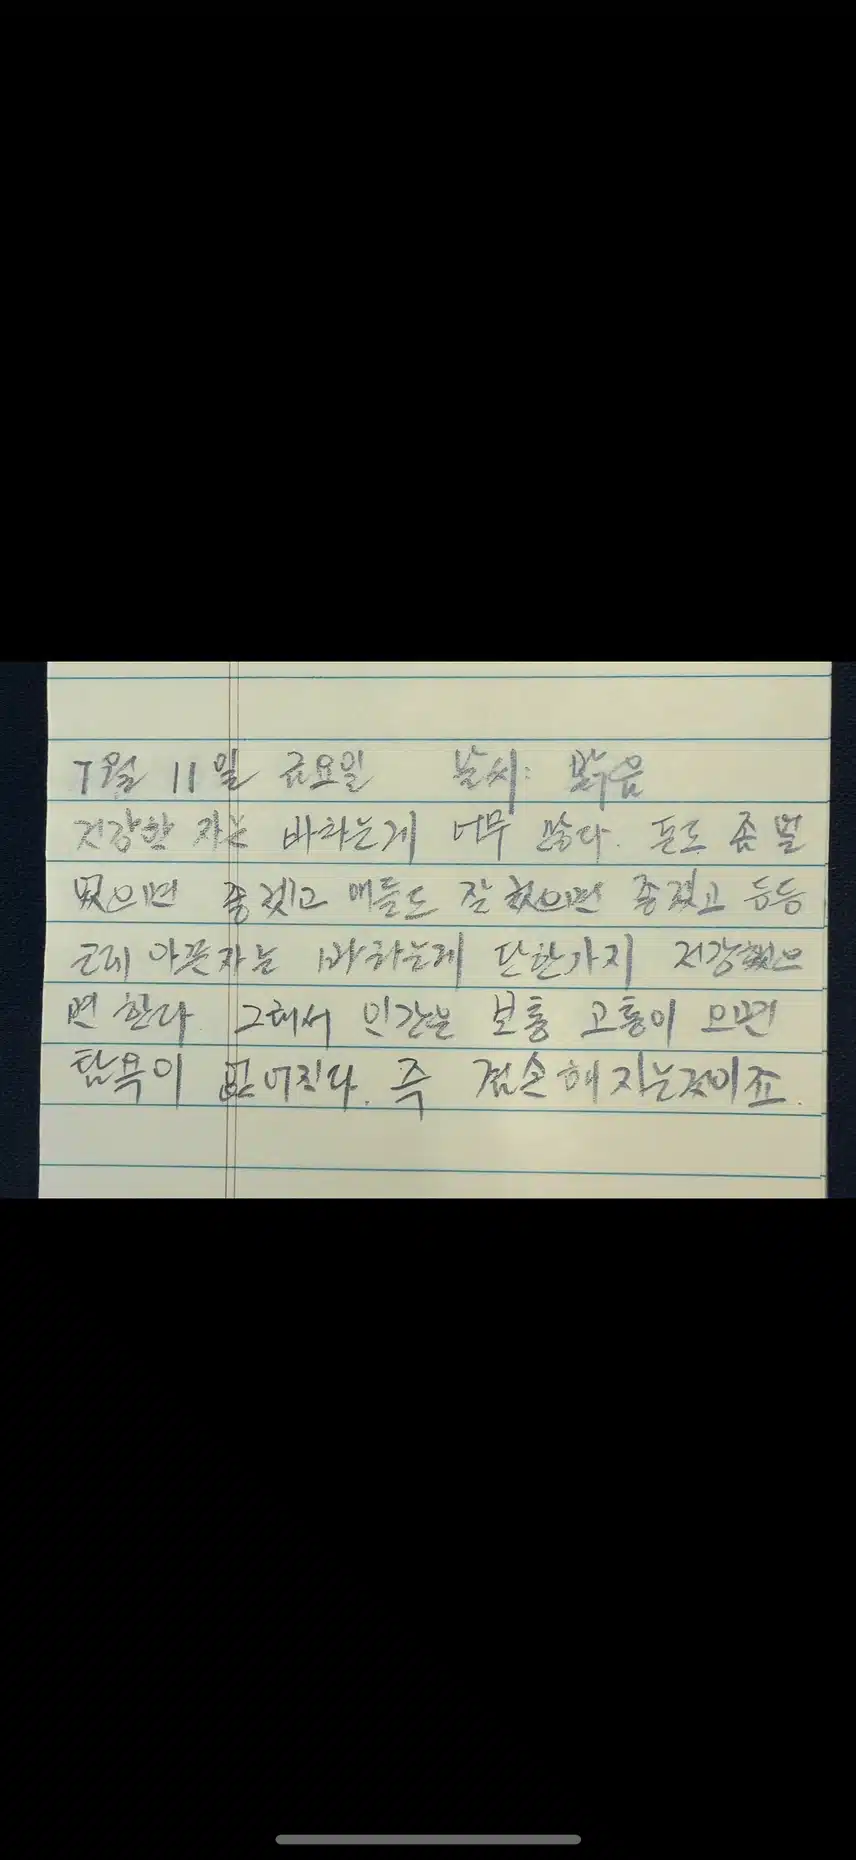 7월 11일 금요일 날씨: 맑음
건강한 자는 바라는게 너무 많다. 돈도 좀 벌
었으면 좋겠고 애들도 잘 했으면 좋겠고 등등
근데 아픈자는 바라는게 단한가지 건강했으
면 한다 그래서 인간은 보통 고통이 오면
탐욕이 없어진다. 즉 겸손해지는것이죠.